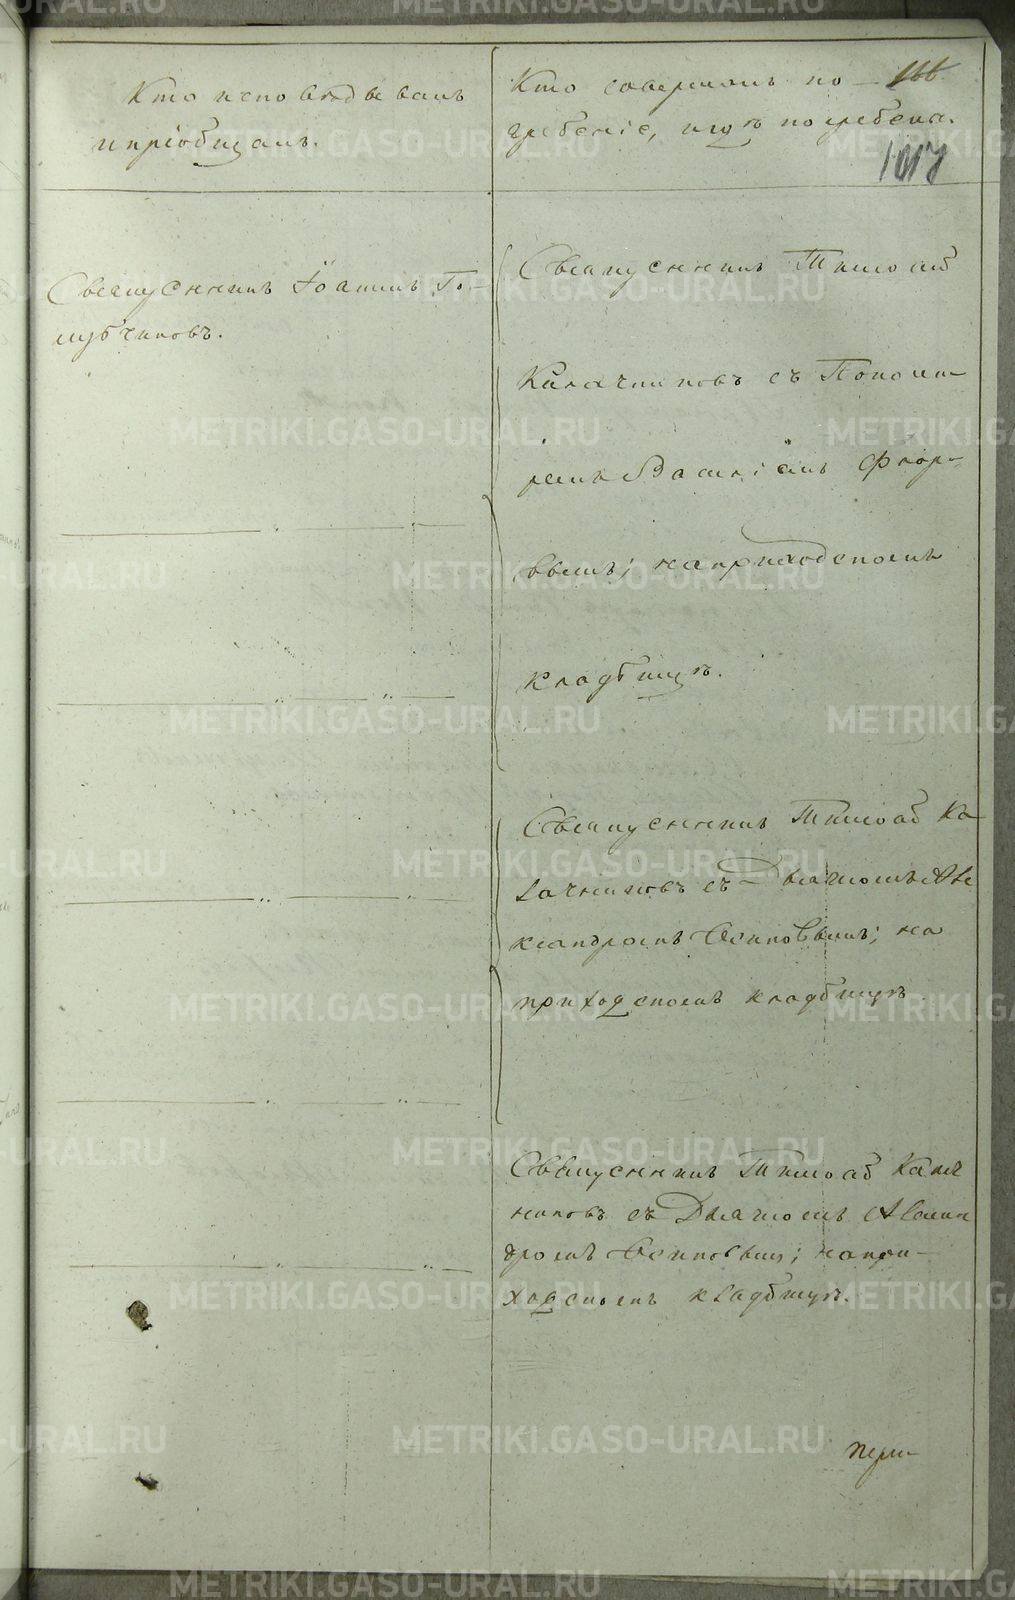 Кто исповѣдывалъ
и пріобщалъ.
Кто совершалъ по-
гребеніе, и гдѣ погребены.
166
1017
Священникъ Іоаннъ Го-
лубчиковъ.
Священникъ Тимоѳей
Калачниковъ съ Понома-
ремъ Василіемъ Флоро-
вымъ; на приходскомъ
кладбищѣ.
Священникъ Тимоѳей Ка
лачниковъ съ Дьячкомъ Але
ксандромъ Осиповымъ; на
приходскомъ кладбищѣ
Священникъ Тимоѳей Калач
никовъ съ Дьячкомъ Алексан
дромъ Осиповым; на при-
ходскомъ кладбищѣ.
METRIKI.GASO-URAL.RU